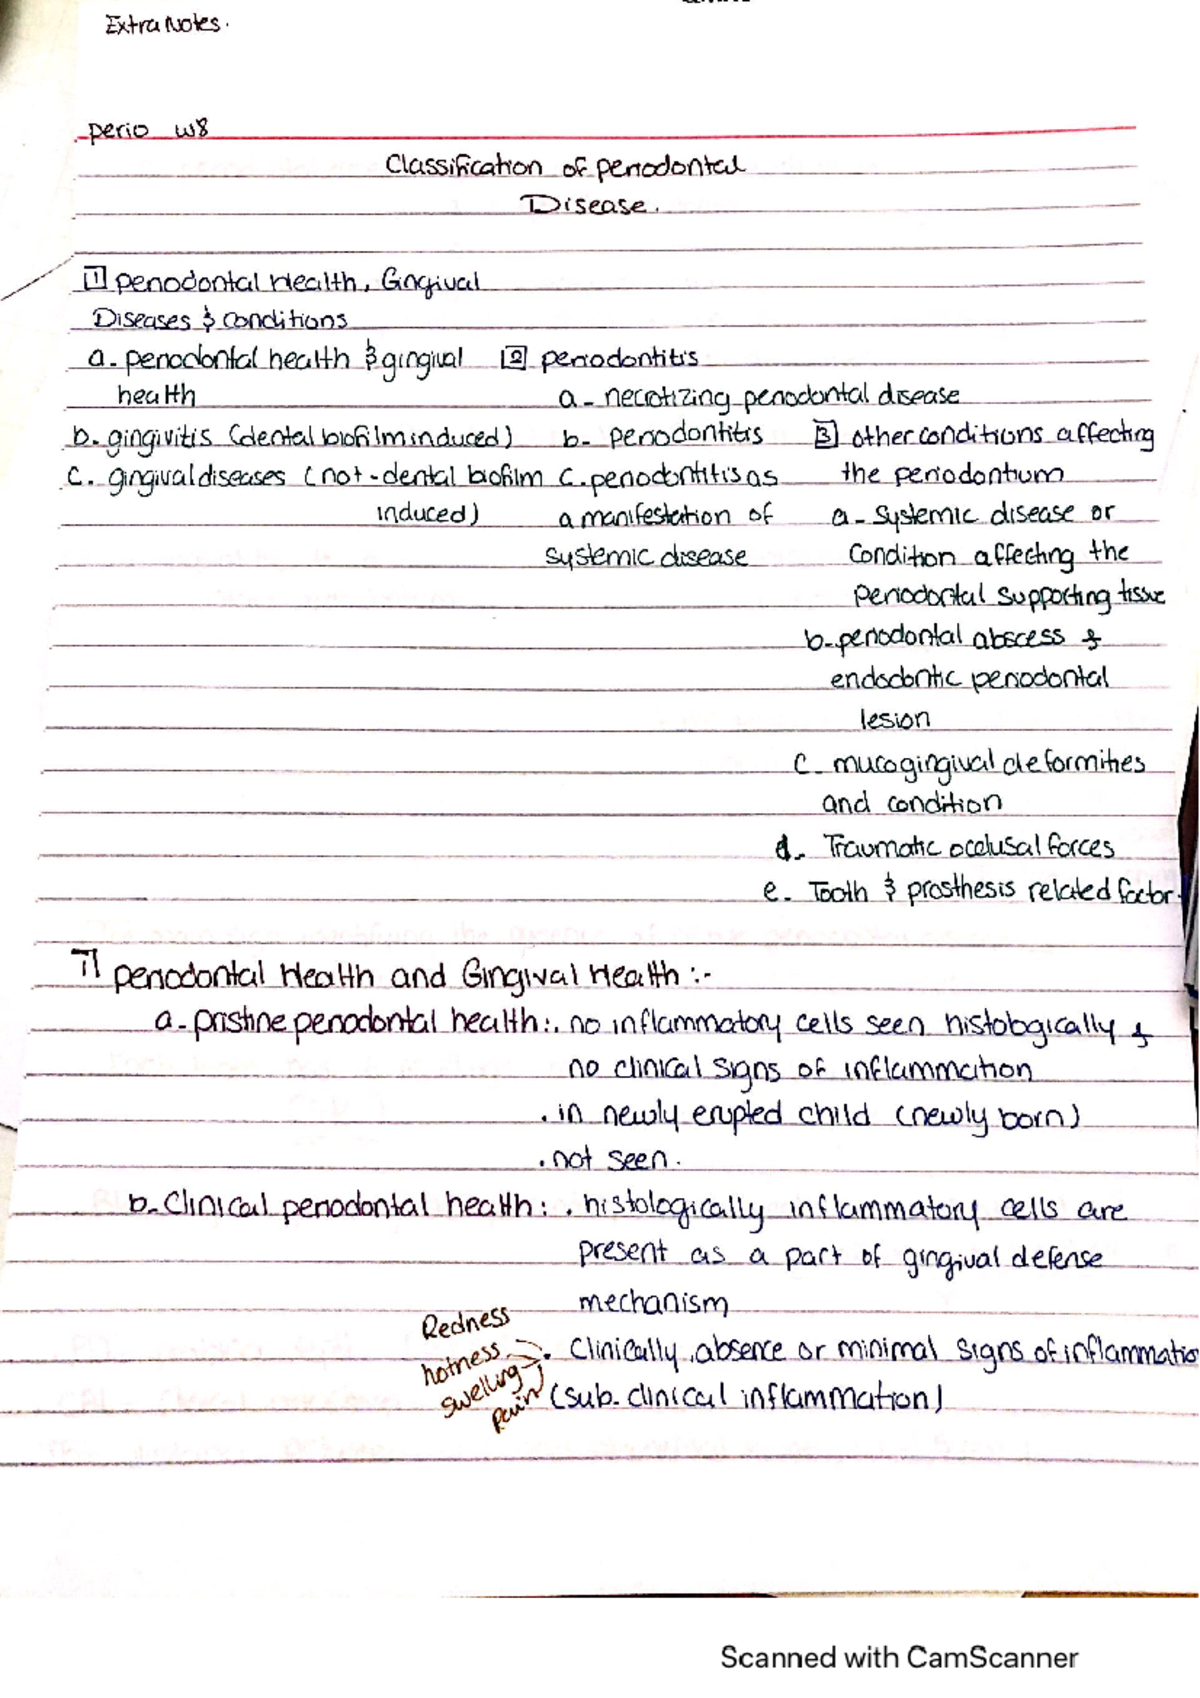 Extra Notes.
perio w8
Classification of periodontal
Disease.
1 periodontal Health, Gingival
Diseases & Conditions
a- periodontal health & gingival
health
b- gingivitis (dental biofilm induced)
c. gingival diseases (not-dental biofilm
induced)
2 periodontitis
a- necrotizing periodontal disease
b- periodontitis
c. periodontitis as
a manifestation of
systemic disease
3 other conditions affecting
the periodontium
a- systemic disease or
Condition affecting the
Periodontal supporting tissue
b- periodontal abscess &
endodontic periodontal
lesion
c- mucogingival deformities
and condition
d- Traumatic occlusal forces
e- Tooth & prosthesis related factor.
1 periodontal Health and Gingival Health :-
a- pristine periodontal health: . no inflammatory cells seen histologically &
no clinical signs of inflammation
. in newly erupted child (newly born)
. not seen.
b- Clinical periodontal health: . histologically inflammatory cells are
present as a part of gingival defense
mechanism
Redness
hotness
swelling
pain
. Clinically, absence or minimal signs of inflammatio
(sub-clinical inflammation)
Scanned with CamScanner